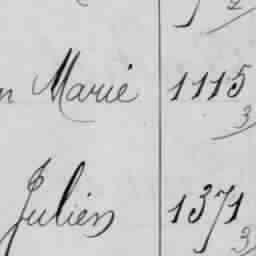 2
n Marie 1115
3
Julien 1371
3